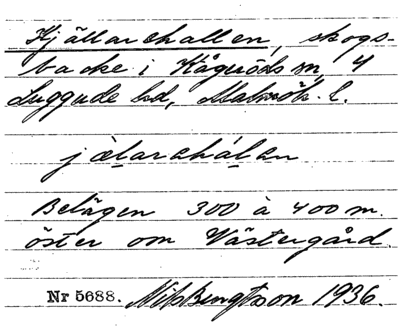 Kjällarehallen, skogs-
backe i Kågeröds sn, 4
Luggude hd, Malmöh. l.
jälarehálen
Belägen 300 à 400 m.
öster om Västergård.
Nr 5688. Nils Bengtsson 1936.